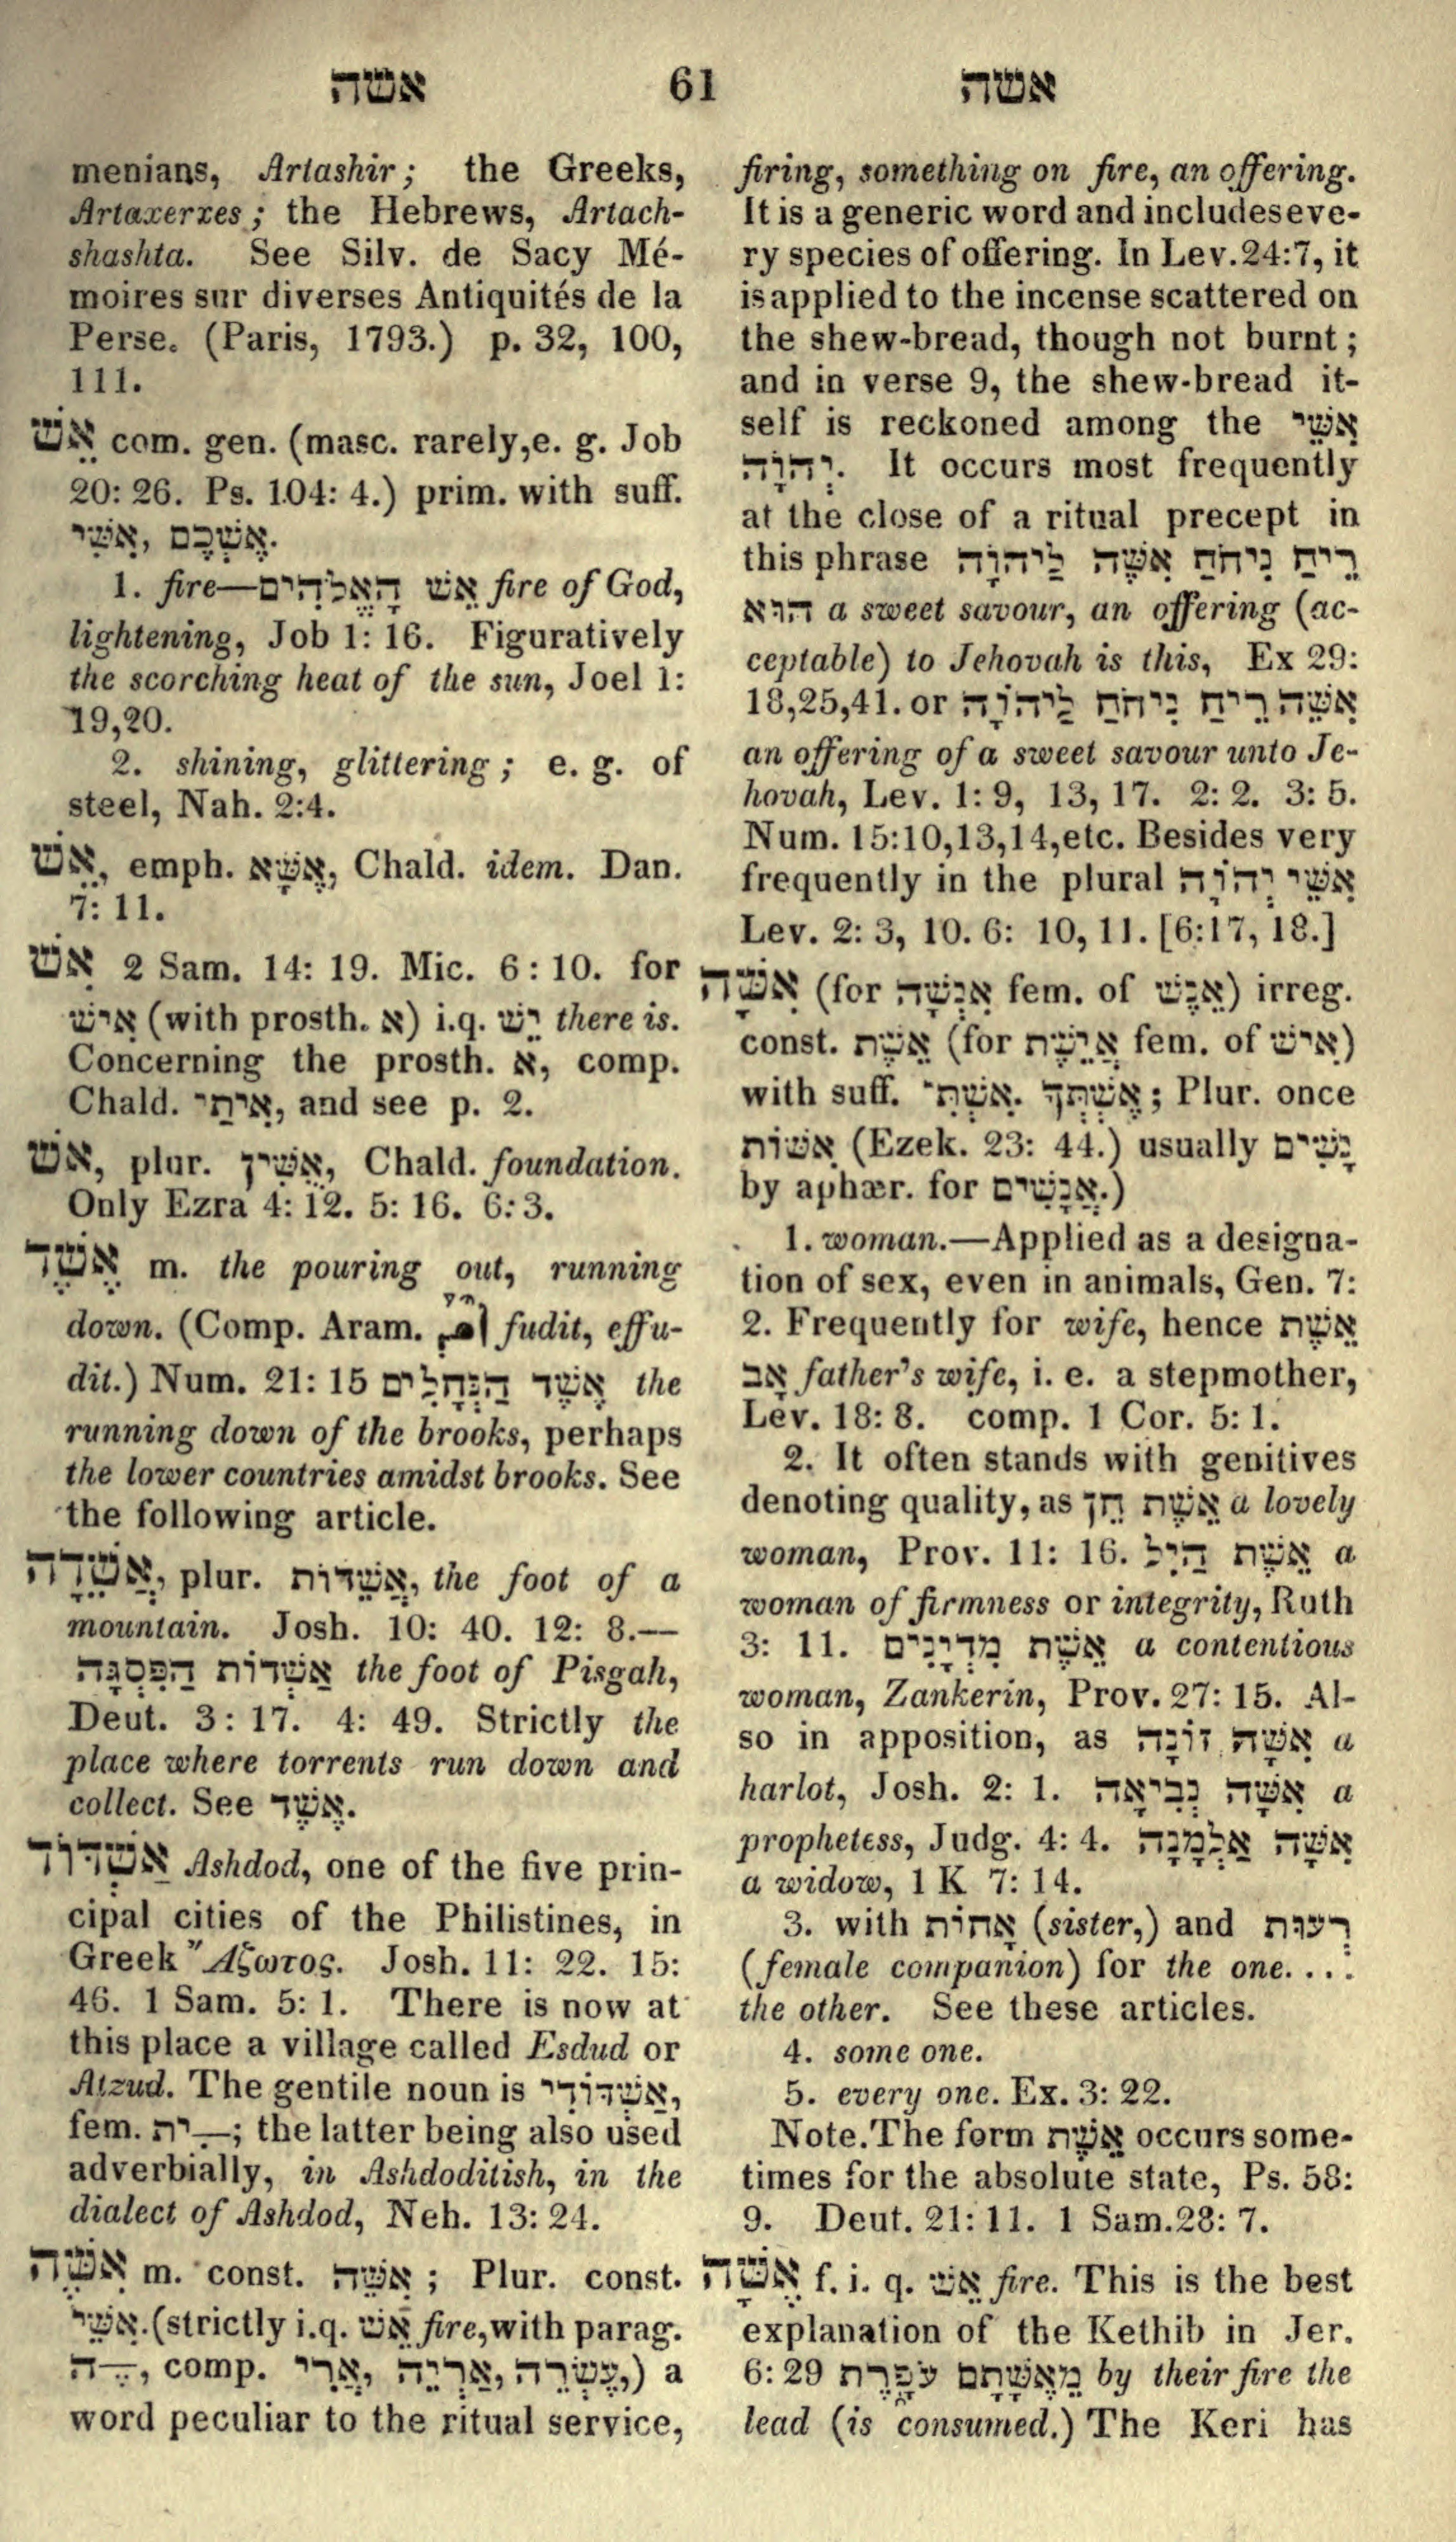 אשה 61 אשה
menians, Artashir; the Greeks,
Artaxerxes; the Hebrews, Artach-
shashta. See Silv. de Sacy Mé-
moires sur diverses Antiquités de la
Perse. (Paris, 1793.) p. 32, 100,
111.
אֵשׁ com. gen. (masc. rarely,e. g. Job
20: 26. Ps. 104: 4.) prim. with suff.
אִשִּׁי, אֶשְׁכֶם.
1. fire—אֵשׁ הָאֱלֹהִים fire of God,
lightening, Job 1: 16. Figuratively
the scorching heat of the sun, Joel 1:
19,20.
2. shining, glittering; e. g. of
steel, Nah. 2:4.
אֵשׁ, emph. אֶשָּׁא, Chald. idem. Dan.
7: 11.
אִשׁ 2 Sam. 14: 19. Mic. 6: 10. for
אִישׁ (with prosth. א) i.q. יֵשׁ there is.
Concerning the prosth. א, comp.
Chald. אִיתַי, and see p. 2.
אֹשׁ, plur. אֻשִּׁין, Chald. foundation.
Only Ezra 4: 12. 5: 16. 6: 3.
אֶשֶׁד m. the pouring out, running
down. (Comp. Aram. fudit, effu-
dit.) Num. 21: 15 אֶשֶׁד הַנְּחָלִים the
running down of the brooks, perhaps
the lower countries amidst brooks. See
the following article.
אֲשֵׁדָה, plur. אֲשֵׁדוֹת, the foot of a
mountain. Josh. 10: 40. 12: 8.—
אַשְׁדוֹת הַפִּסְגָּה the foot of Pisgah,
Deut. 3: 17. 4: 49. Strictly the
place where torrents run down and
collect. See אֶשֶׁד.
אַשְׁדּוֹד Ashdod, one of the five prin-
cipal cities of the Philistines, in
Greek Ἄζωτος. Josh. 11: 22. 15:
46. 1 Sam. 5: 1. There is now at
this place a village called Esdud or
Atzud. The gentile noun is אַשְׁדּוֹדִי,
fem. ־ִית; the latter being also used
adverbially, in Ashdoditish, in the
dialect of Ashdod, Neh. 13: 24.
אִשֶּׁה m. const. אִשֵּׁה; Plur. const.
אִשֵּׁי.(strictly i.q. אֵשׁ fire,with parag.
־ֶה, comp. אֲרִי, אַרְיֵה, עֶשְׂרֵה,) a
word peculiar to the ritual service,
firing, something on fire, an offering.
It is a generic word and includes eve-
ry species of offering. In Lev.24:7, it
is applied to the incense scattered on
the shew-bread, though not burnt;
and in verse 9, the shew-bread it-
self is reckoned among the אִשֵּׁי
יְהוָֹה. It occurs most frequently
at the close of a ritual precept in
this phrase רֵיחַ נִיחֹחַ אִשֶּׁה לַיהוָֹה
הוּא a sweet savour, an offering (ac-
ceptable) to Jehovah is this, Ex 29:
18,25,41. or אִשֵּׁה רֵיחַ נִיחֹחַ לַיהוָֹה
an offering of a sweet savour unto Je-
hovah, Lev. 1: 9, 13, 17. 2: 2. 3: 5.
Num. 15:10,13,14,etc. Besides very
frequently in the plural אִשֵּׁי יְהוָֹה
Lev. 2: 3, 10. 6: 10, 11. [6:17, 18.]
אִשָּׁה (for אִנְשָׁה fem. of אֱנָשׁ) irreg.
const. אֵשֶׁת (for אֲיֵשֶׁת fem. of אִישׁ)
with suff. אִשְׁתִּי. אֶשְׁתְּךָ; Plur. once
אִשּׁוֹת (Ezek. 23: 44.) usually נָשִׁים
by aphær. for אֲנָשִׁים.)
1. woman.—Applied as a designa-
tion of sex, even in animals, Gen. 7:
2. Frequently for wife, hence אֵשֶׁת
אָב father's wife, i. e. a stepmother,
Lev. 18: 8. comp. 1 Cor. 5: 1.
2. It often stands with genitives
denoting quality, as אֵשֶׁת חֵן a lovely
woman, Prov. 11: 16. אֵשֶׁת חַיִל a
woman of firmness or integrity, Ruth
3: 11. אֵשֶׁת מִדְיָנִים a contentious
woman, Zankerin, Prov. 27: 15. Al-
so in apposition, as אִשָּׁה זוֹנָה a
harlot, Josh. 2: 1. אִשָּׁה נְבִיאָה a
prophetess, Judg. 4: 4. אִשָּׁה אַלְמָנָה
a widow, 1 K 7: 14.
3. with אָחוֹת (sister,) and רְעוּת
(female companion) for the one....
the other. See these articles.
4. some one.
5. every one. Ex. 3: 22.
Note.The form אֵשֶׁת occurs some-
times for the absolute state, Ps. 58:
9. Deut. 21: 11. 1 Sam.28: 7.
אֶשָּׁה f. i. q. אֵשׁ fire. This is the best
explanation of the Kethib in Jer.
6: 29 מֵאֶשָּׁתָם עֹפָרֶת by their fire the
lead (is consumed.) The Keri has